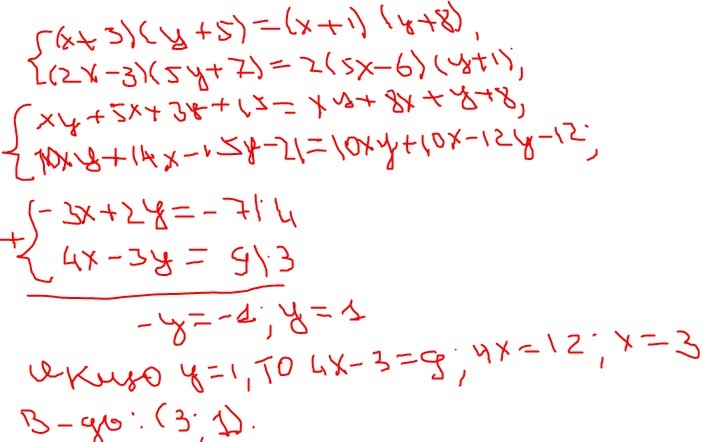 {(x+3)(y+5)=(x+1)(y+8),
{(2x-3)(5y+7)=2(5x-6)(y+1);
{xy+5x+3y+15=xy+8x+y+8,
{10xy+14x-15y-21=10xy+10x-12y-12;
+{-3x+2y=-7|·4
{4x-3y=9|·3
-y=-1; y=1
Якщо y=1, то 4x-3=9; 4x=12; x=3
В-дь: (3; 1).